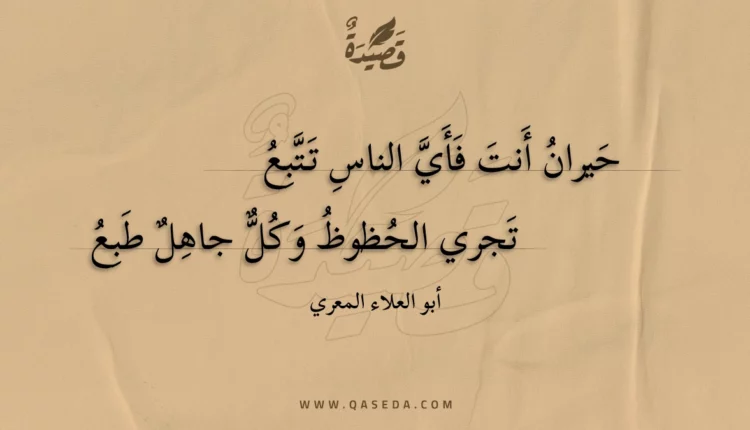 قَصِيْدَةٌ
حَيرانُ أَنتَ فَأَيَّ الناسِ تَتَّبِعُ
تَجري الحُظوظُ وَكُلٌّ جاهِلٌ طَبِعُ
أبو العلاء المعري
WWW.QASEDA.COM